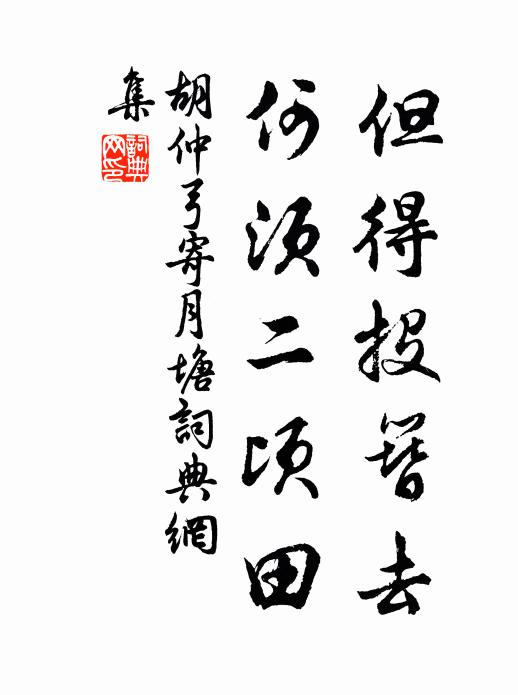 但得投簪去
何須二頃田
胡仲弓寄月塘詞典網
集
詞典
网印